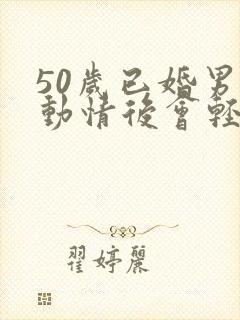 50歲已婚男
動情後會輕
翟婷麗